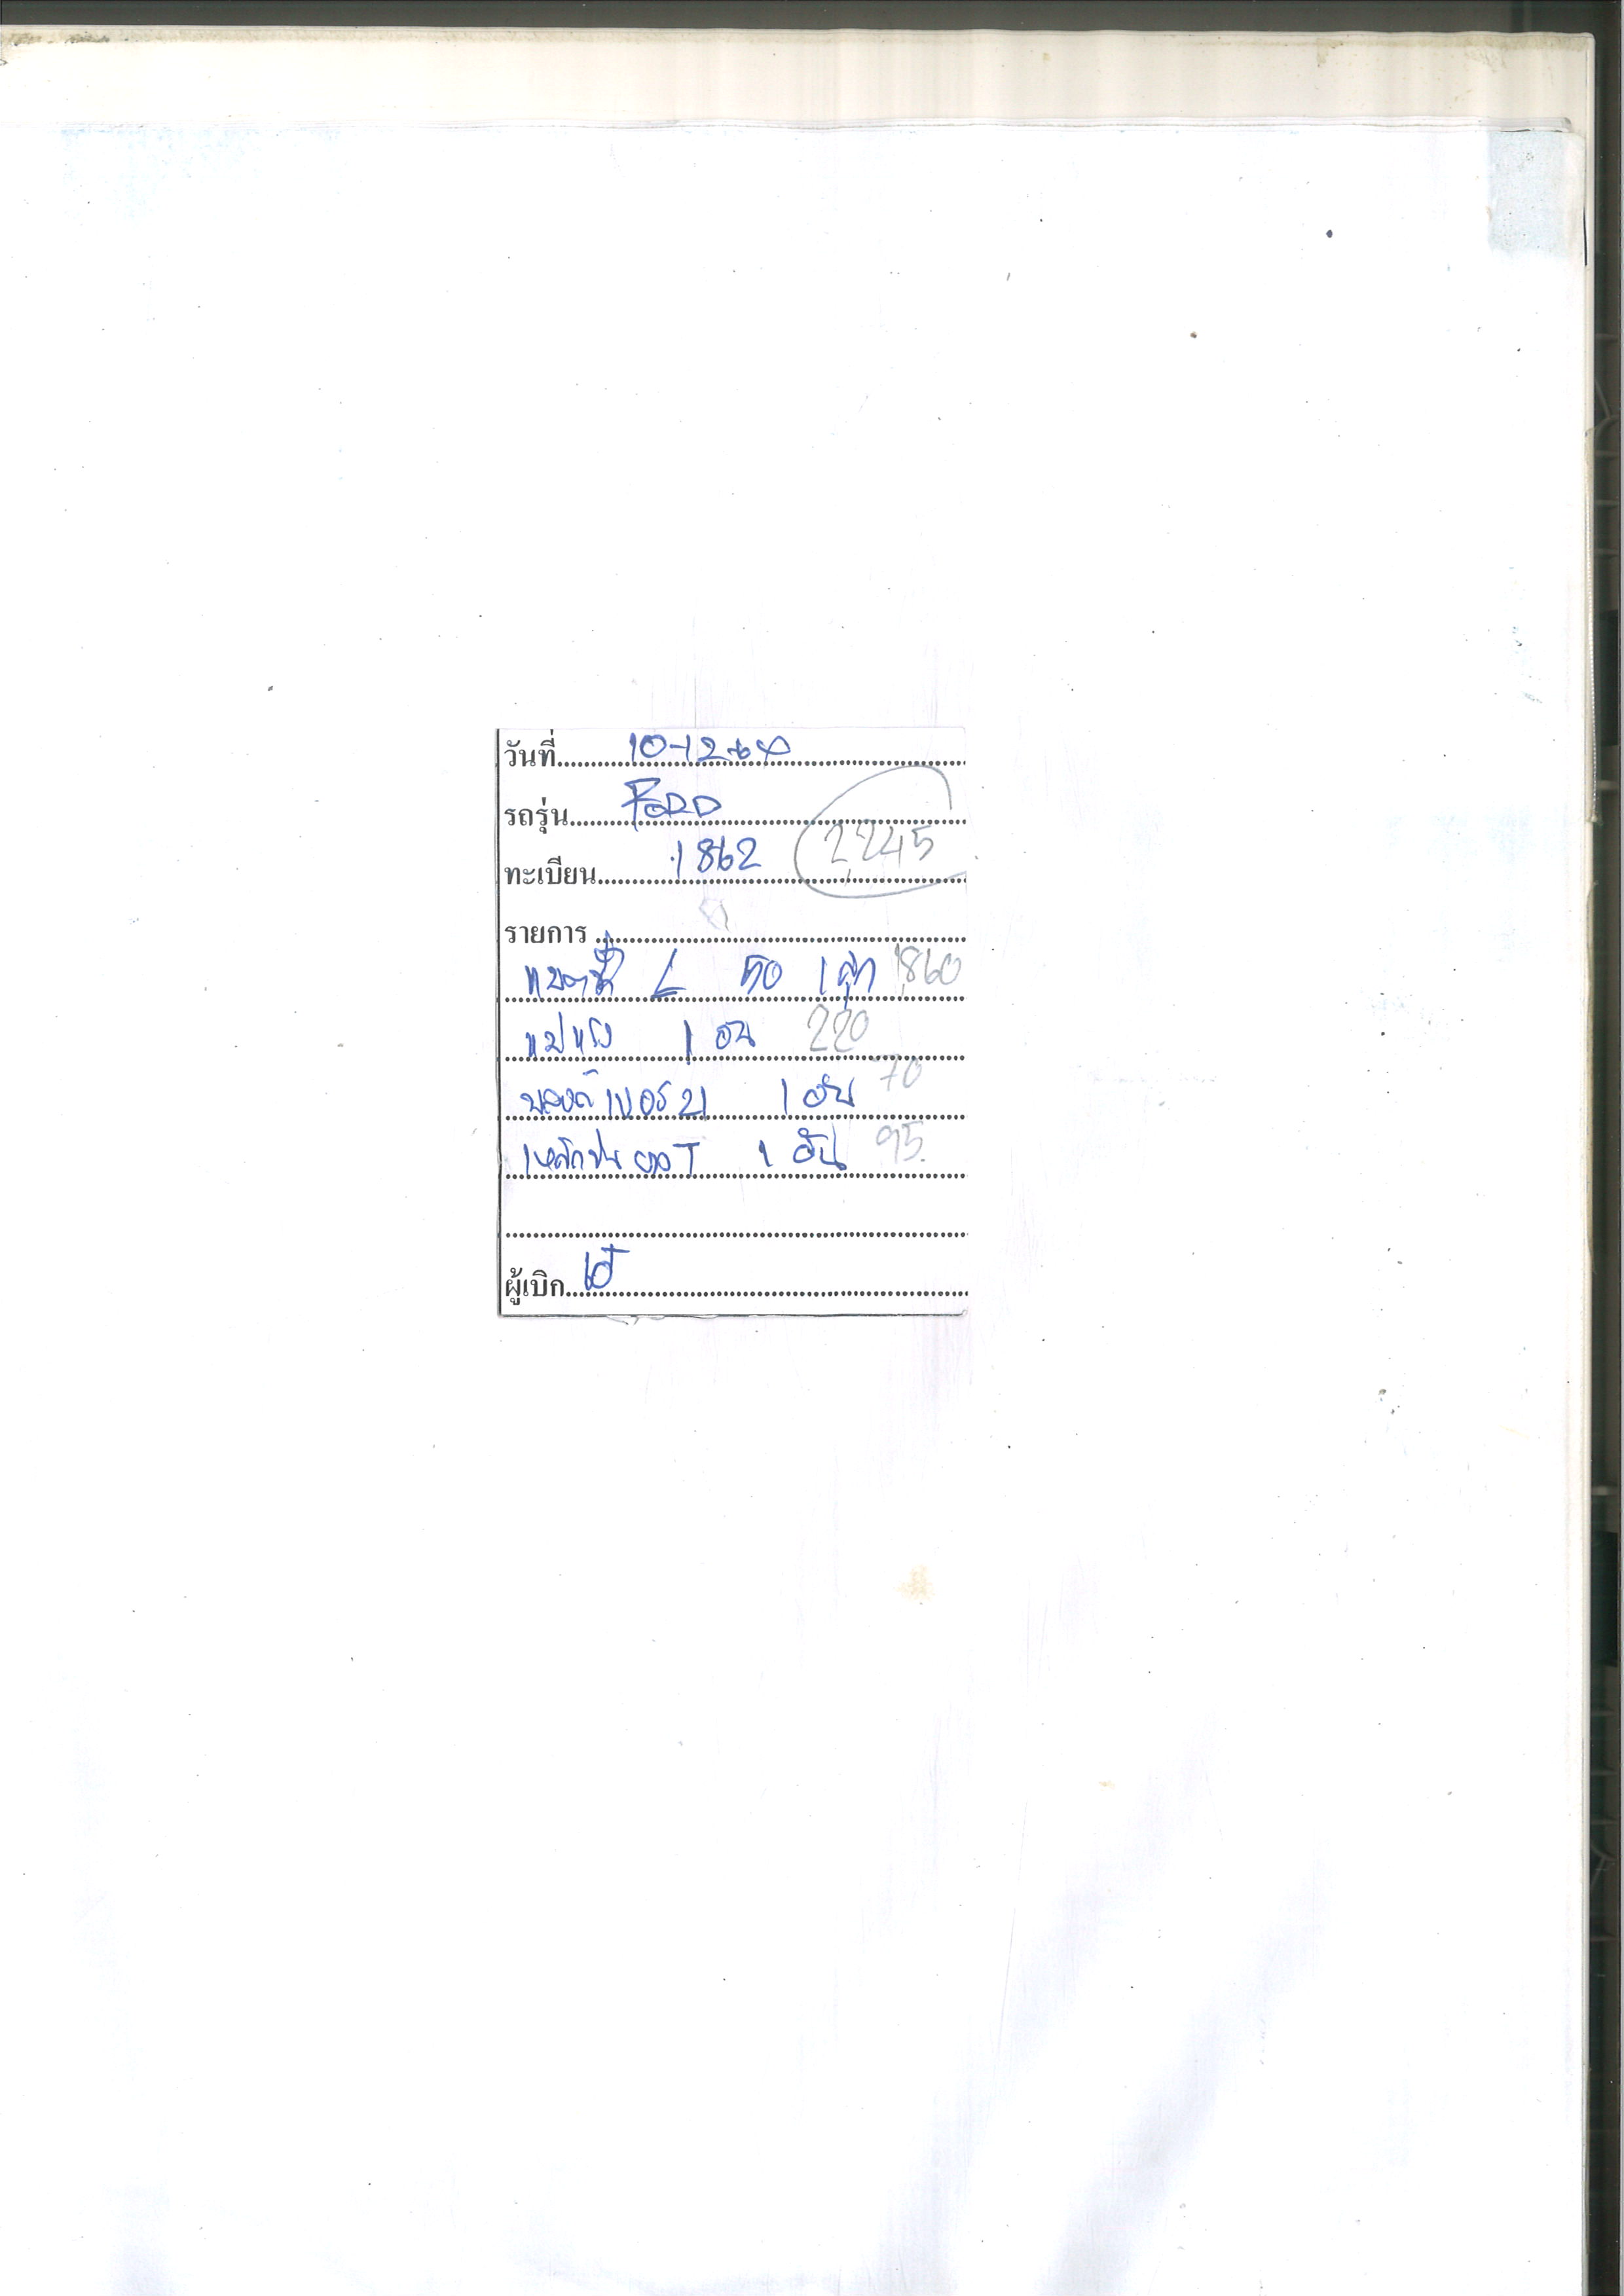 วันที่ 10-12-64
รถรุ่น FORD
ทะเบียน 1862 2245
รายการ
แบตตี้ L 50 1 ลูก 1860
แปรง 1 อัน 220
เบอร์ 21 1 อัน 70
เหล็ก ตัว T 1 อัน 95
ผู้เบิก